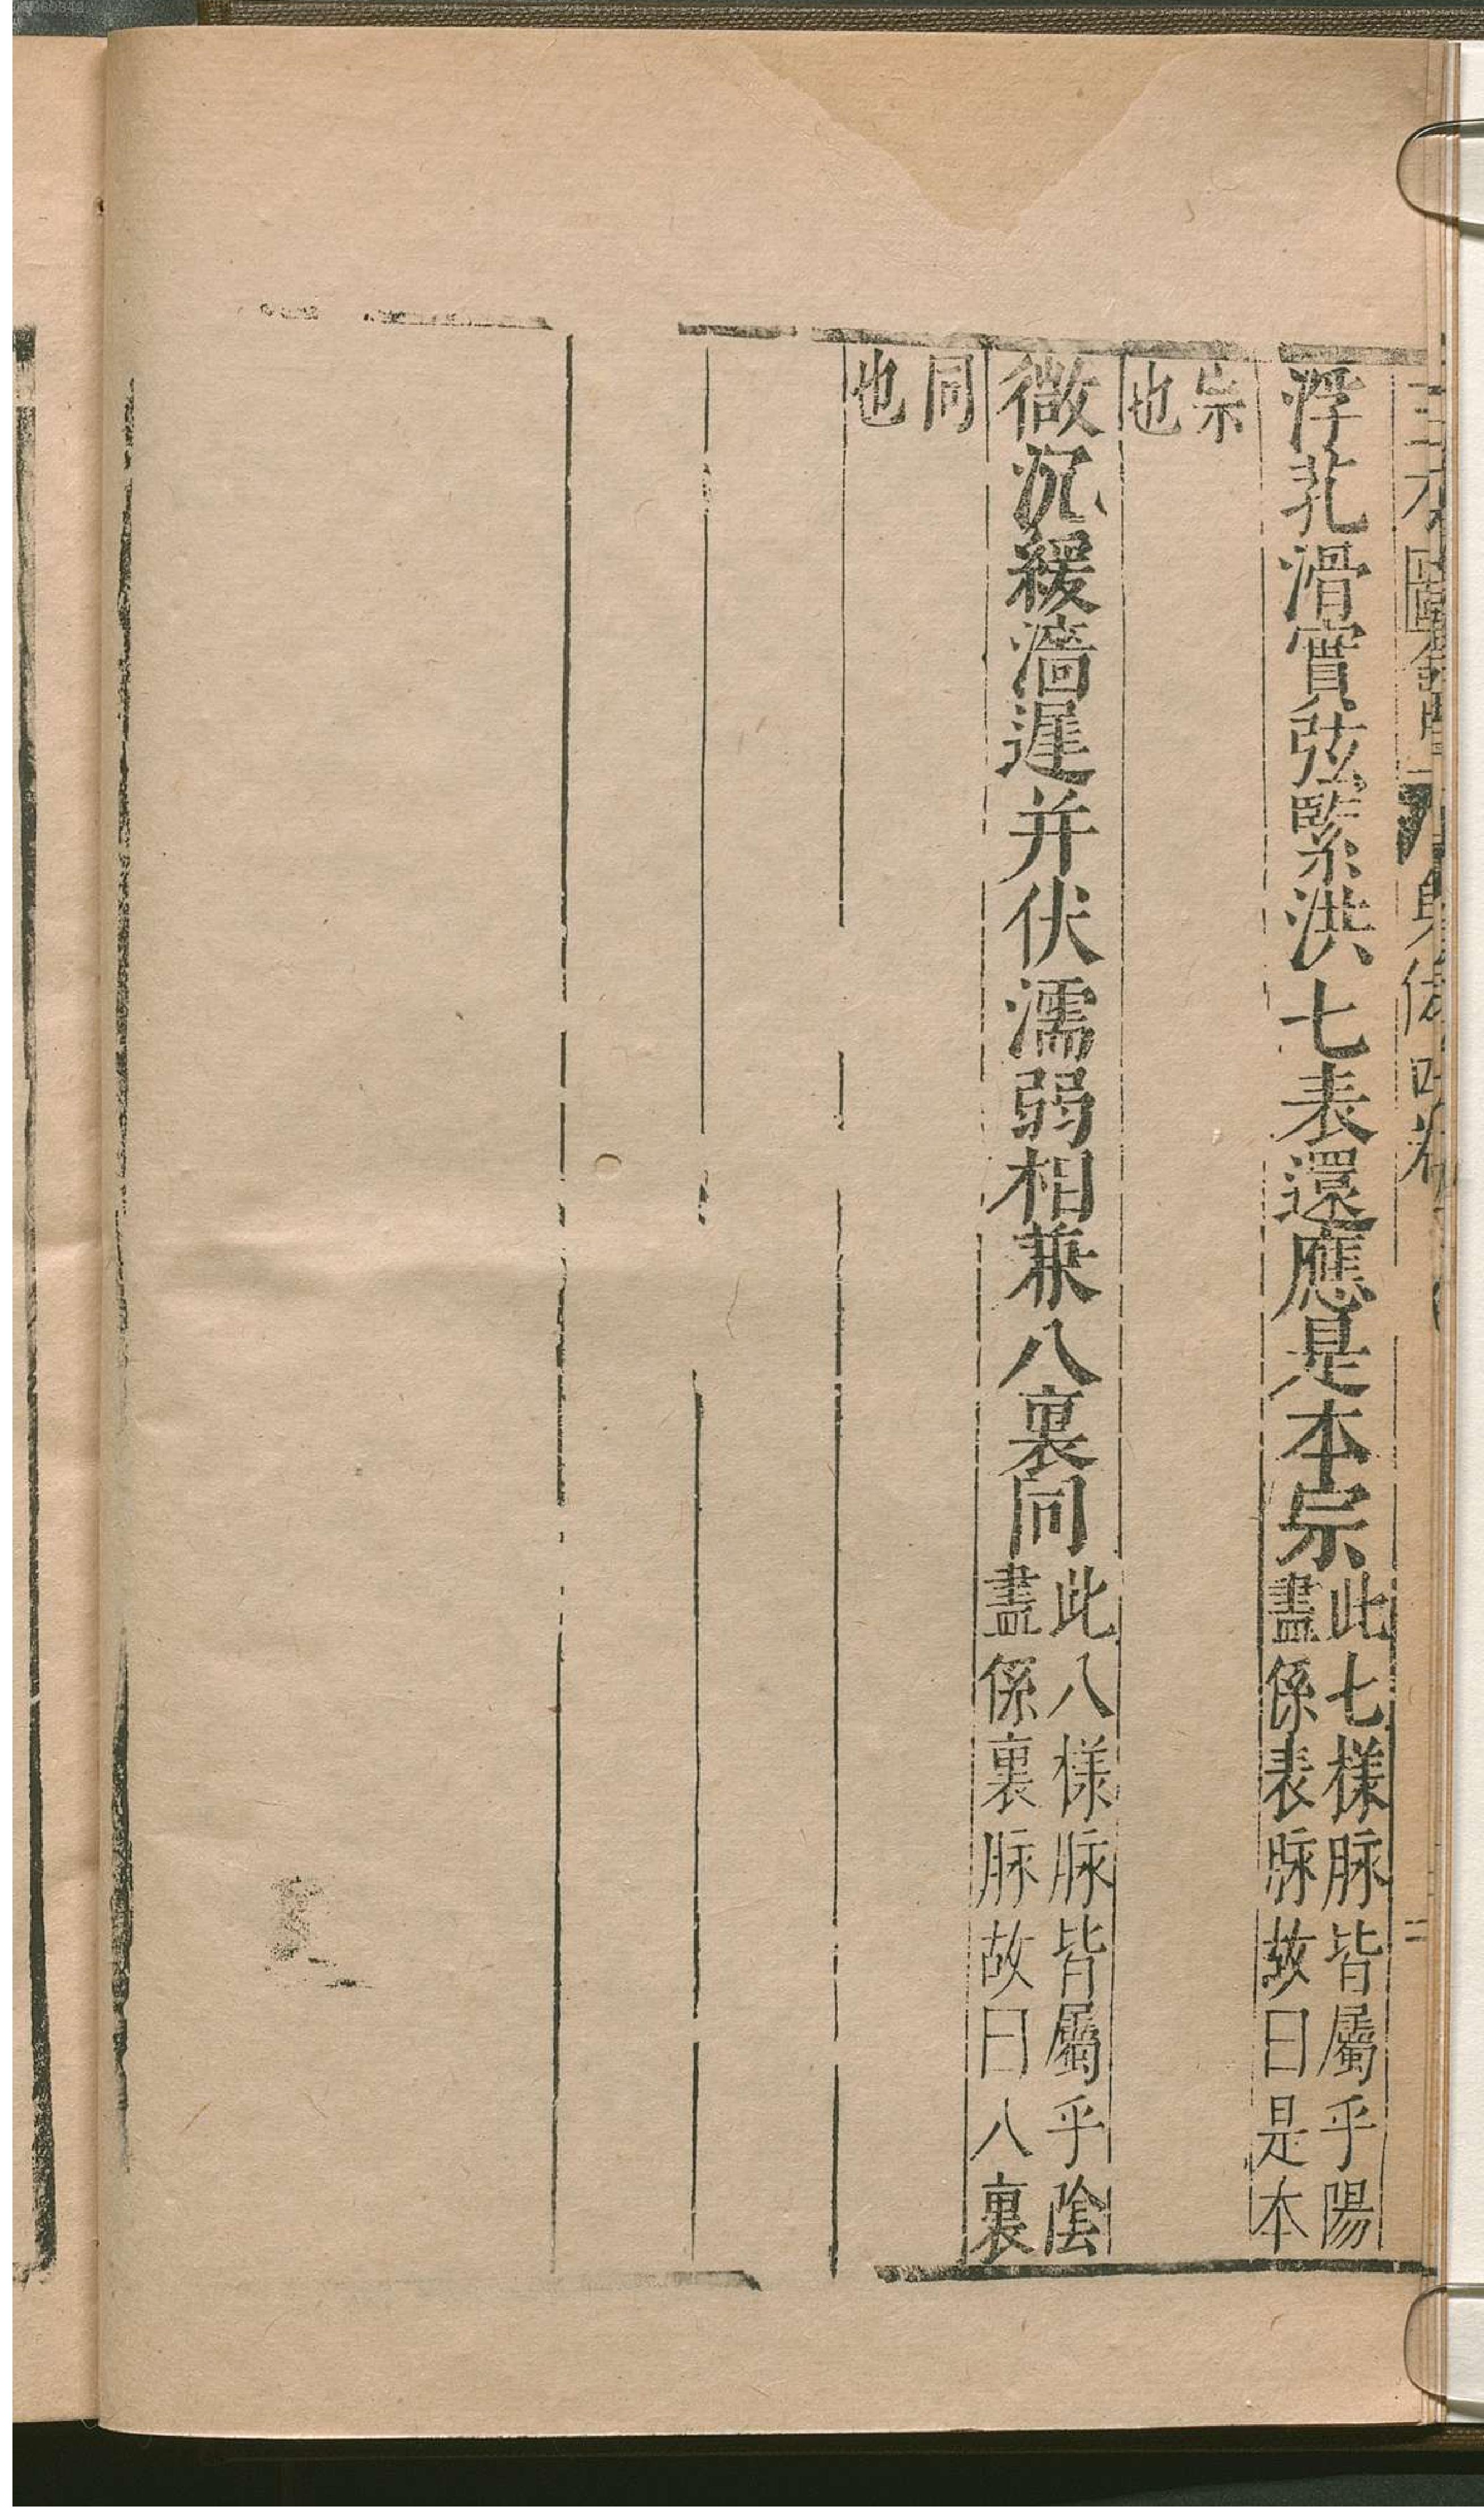 浮芤滑實弦緊洪七表還應是本宗此七樣脉皆屬乎陽盡係表脉故曰是本
宗也
微沉緩濇遲并伏濡弱相兼八裏同此八樣脉皆屬乎陰盡係裏脉故曰八裏
同也